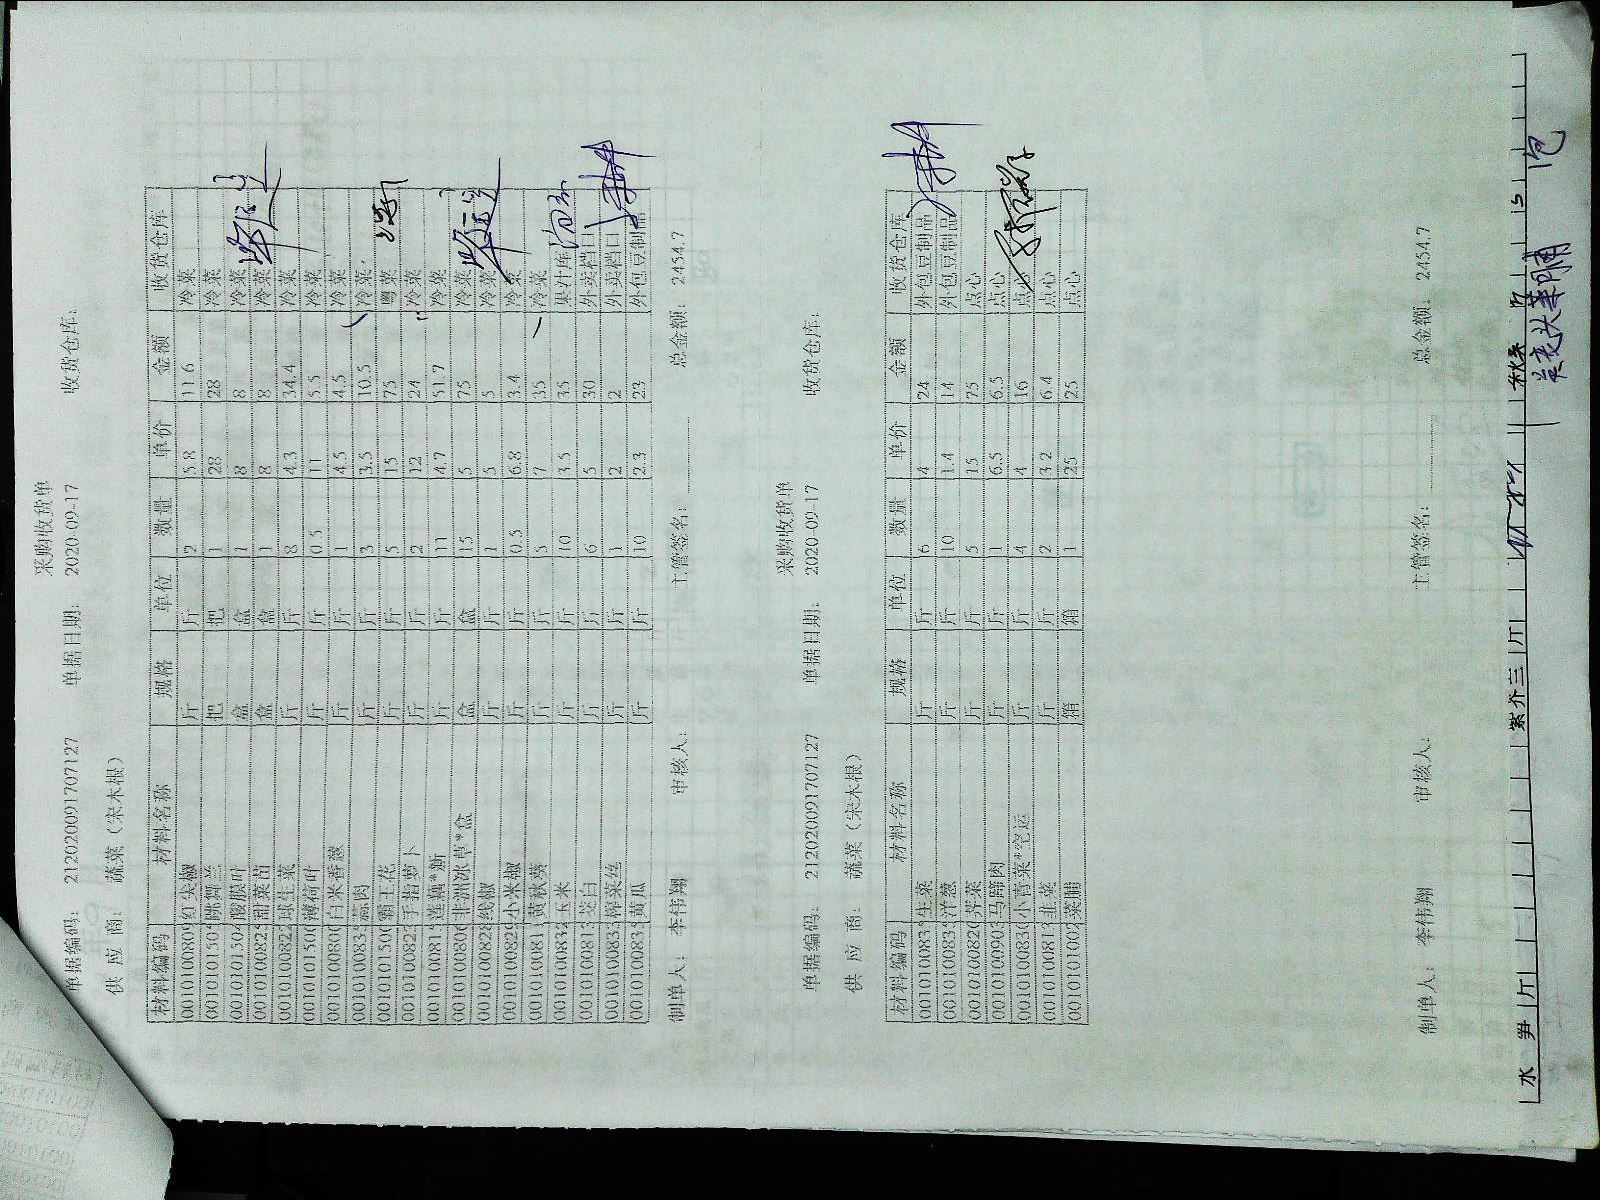 采购收货单
单据编码: 212020091707127 单据日期: 2020-09-17 收货仓库:
供 应 商: 蔬菜（宋木根）
材料编码 材料名称 规格 单位 数量 单价 金额 收货仓库
0010100809 红尖椒 斤 斤 2 5.8 11.6 冷菜
001010130 跳舞兰 把 把 1 28 28 冷菜
001010130 酸膜叶 盒 盒 1 8 8 冷菜
001010082 甜菜苗 盒 盒 1 8 8 冷菜
001010082 球生菜 斤 斤 8 4.3 34.4 冷菜
001010150 薄荷叶 斤 斤 0.5 11 5.5 冷菜
001010080 白米香葱 斤 斤 1 4.5 4.5 冷菜
001010083 蒜肉 斤 斤 3 3.5 10.5 冷菜
001010130 霸王花 斤 斤 5 15 75 粤菜
001010082 手指萝卜 斤 斤 2 12 24 冷菜
001010081 莲藕*新 斤 斤 11 4.7 51.7 冷菜
001010080 非洲冰草*盒 盒 盒 15 5 75 冷菜
001010082 线椒 斤 斤 1 5 5 冷菜
001010082 小米椒 斤 斤 0.5 6.8 3.4 冷菜
001010081 黄秋葵 斤 斤 5 7 35 冷菜
001010083 玉米 斤 斤 10 3.5 35 果汁库
001010081 茭白 斤 斤 6 5 30 外卖档口
001010083 榨菜丝 斤 斤 1 2 2 外卖档口
001010083 黄瓜 斤 斤 10 2.3 23 外包豆制品
制单人: 李伟翔 审核人: 主管签名: 总金额: 2454.7
采购收货单
单据编码: 212020091707127 单据日期: 2020-09-17 收货仓库:
供 应 商: 蔬菜（宋木根）
材料编码 材料名称 规格 单位 数量 单价 金额 收货仓库
001010083 生菜 斤 斤 6 4 24 外包豆制品
001010083 洋葱 斤 斤 10 1.4 14 外包豆制品
001010082 荠菜 斤 斤 5 15 75 点心
001010090 马蹄肉 斤 斤 1 6.5 6.5 点心
001010083 小青菜*空运 斤 斤 4 4 16 点心
001010081 韭菜 斤 斤 2 3.2 6.4 点心
001010100 菜脯 箱 箱 1 25 25 点心
制单人: 李伟翔 审核人: 主管签名: 总金额: 2454.7
水 笋 斤 紫芥兰 斤